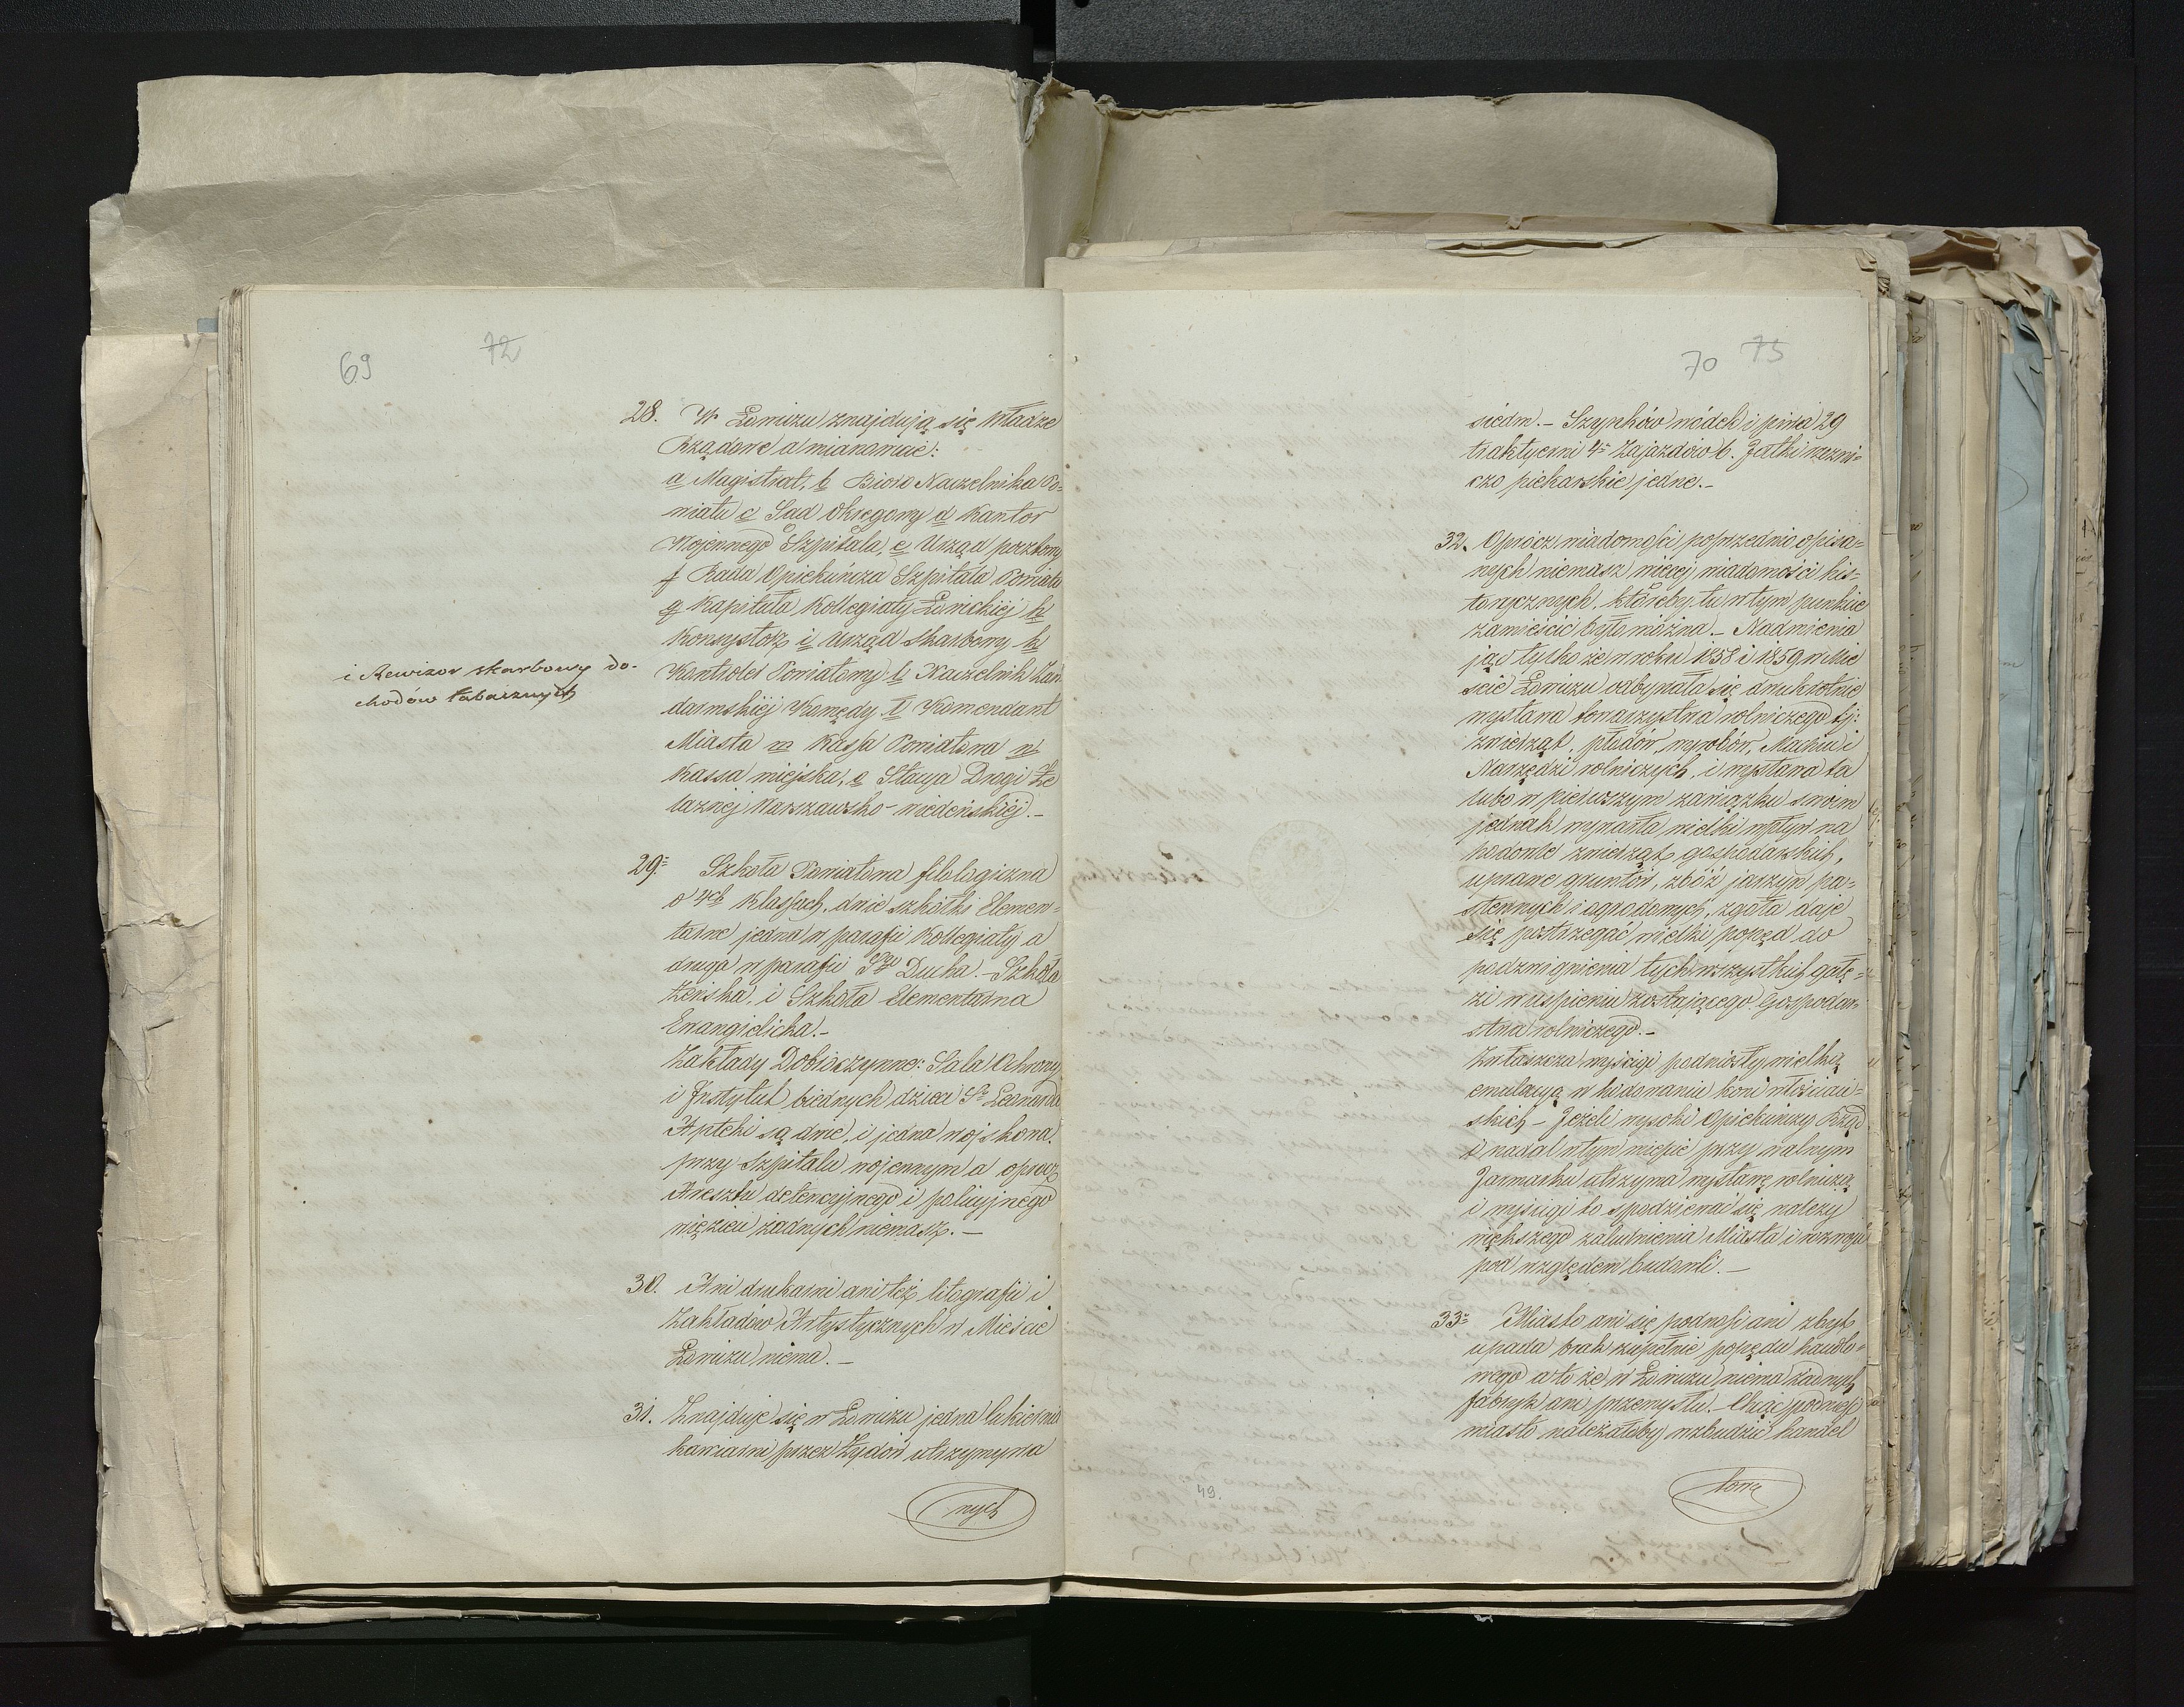 69 72
28. W Łowiczu znajdują się Władze
Rządowe a mianowicie:
a Magistrat, b Biuro Naczelnika Po-
wiatu c Sąd Okręgowy d Kantor
Wojennego Szpitala, e Urząd pocztowy
f Rada Opiekuńcza Szpitala Powiato
g Kapituła Kollegiaty Łowickiéj h
Konsystorz i Urząd Skarbowy k
i Rewizor skarbowy do-
chodów tabacznych
Kontroler Powiatowy l Naczelnik Żan
darmskiéj Komędy. ł Komendant
Miasta m Kassa Powiatowa n
Kassa miejska, o Stacja Drogi Że
laznéj Warszawsko-wiedeńskiéj.-
29= Szkoła Powiatowa filologiczna
o 4ch Klassach, dwie szkółki Elemen=
tarne jedna w parafii Kollegiaty a
druga w parafii Sgo Ducha.- Szkoła
żeńska, i Szkoła Elementarna
Ewangielicka.-
Zakłady Dobroczynne: Sala Ochrony
i Instytut biednych dzieci Sgo Leonarda
Apteki są dwie, i jedna wojskowa
przy Szpitalu wojennym a oprócz
Aresztu detencyjnego i policyjnego
więzień żadnych niemasz.-
30. Ani drukarni ani też litografii i
Zakładów Artystycznych w Mieście
Łowiczu niema.-
31. Znajduje się w Łowiczu jedna Cukiernia
kawiarni przez Żydów utrzymywa
nych
70 75
siedm.- Szynków wódek i piwa 29
traktyerni 4= Zajazdów 6. Jatki rzezni=
czo piekarskie jedne.-
32. Oprócz wiadomości poprzednio opisa=
nych niemasz więcej wiadomości his=
torycznych, któreby tu w tym punkcie
zamieścić było można.- Nadmienia
jąc tylko że w roku 1858 i 1859 w Mie
ście Łowiczu odbywała się dwukrotnie
wystawa towarzystwa rolniczego tj:
zwierząt, płodów, wyrobów, Machin i
Narzędzi rolniczych, i wystawa ta
lubo w pierwszym zawiązku swoim
jednak wywarła wielki wpływ na
hodowlę zwierząt gospodarskich,
uprawę gruntów, zbóż jarzyn pa=
stewnych i ogrodowych, zgoła daje
się postrzegać wielki popęd do
podzwignienia tych wszystkich gałę=
zi w uśpieniu zostającego Gospodar
stwa rolniczego.-
Zwłaszcza wyścigi podniosły wielką
emulacyą w hodowaniu koni włościań=
skich - Jeżeli wysoki Opiekuńczy Rząd
i nadal w tym mieście przy walnym
Jarmarku utrzyma wystawę rolniczą
i wyścigi to spodziewać się należy
większego zaludnienia Miasta i rozwoju
pod względem budowli.-
33= Miasto ani się podnosi ani zbyt
upada brak zupełnie popędu handlo=
wego a to że w Łowiczu niema żadnych
fabryk ani przemysłu.- Chcąc podnieść
miasto należałoby wzbudzić handel
49.